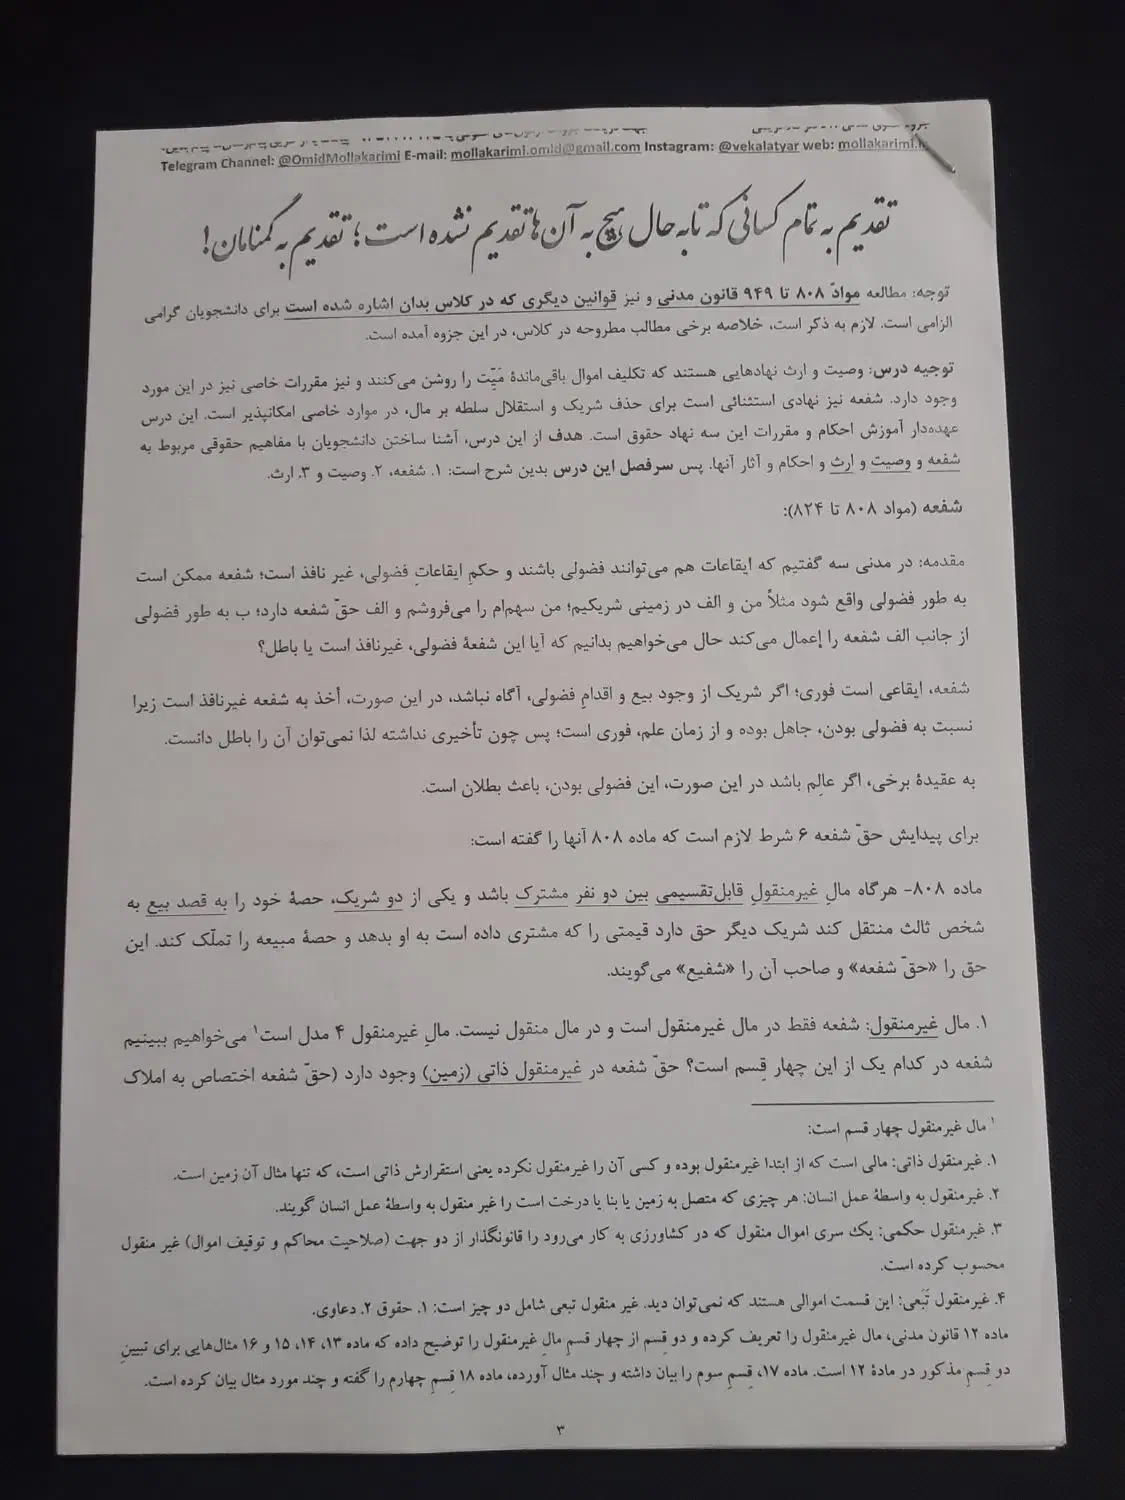 Telegram Channel: @OmidMollakarimi E-mail: mollakarimi.omid@gmail.com Instagram: @vekalatyar web: mollakarimi.ir
تقدیم به تمام کسانی که تا به حال هیچ به آن ها تقدیم نشده است؛ تقدیم به گمنامان!
توجه: مطالعه موادّ ۸۰۸ تا ۹۴۹ قانون مدنی و نیز قوانین دیگری که در کلاس بدان اشاره شده است برای دانشجویان گرامی
الزامی است. لازم به ذکر است، خلاصه برخی مطالب مطروحه در کلاس، در این جزوه آمده است.
توجیه درس: وصیت و ارث نهادهایی هستند که تکلیف اموال باقی‌ماندۀ مَیّت را روشن می‌کنند و نیز مقررات خاصی نیز در این مورد
وجود دارد. شفعه نیز نهادی استثنائی است برای حذف شریک و استقلال سلطه بر مال، در موارد خاصی امکانپذیر است. این درس
عهده‌دار آموزش احکام و مقررات این سه نهاد حقوق است. هدف از این درس، آشنا ساختن دانشجویان با مفاهیم حقوقی مربوط به
شفعه و وصیت و ارث و احکام و آثار آنها. پس سرفصل این درس بدین شرح است: ۱. شفعه، ۲. وصیت و ۳. ارث.
شفعه (مواد ۸۰۸ تا ۸۲۴):
مقدمه: در مدنی سه گفتیم که ایقاعات هم می‌توانند فضولی باشند و حکمِ ایقاعاتِ فضولی، غیر نافذ است؛ شفعه ممکن است
به طور فضولی واقع شود مثلاً من و الف در زمینی شریکیم؛ من سهم‌ام را می‌فروشم و الف حقّ شفعه دارد؛ ب به طور فضولی
از جانب الف شفعه را إعمال می‌کند حال می‌خواهیم بدانیم که آیا این شفعۀ فضولی، غیرنافذ است یا باطل؟
شفعه، ایقاعی است فوری؛ اگر شریک از وجود بیع و اقدامِ فضولی، آگاه نباشد، در این صورت، أخذ به شفعه غیرنافذ است زیرا
نسبت به فضولی بودن، جاهل بوده و از زمان علم، فوری است؛ پس چون تأخیری نداشته لذا نمی‌توان آن را باطل دانست.
به عقیدۀ برخی، اگر عالِم باشد در این صورت، این فضولی بودن، باعث بطلان است.
برای پیدایش حقّ شفعه ۶ شرط لازم است که ماده ۸۰۸ آنها را گفته است:
ماده ۸۰۸- هرگاه مالِ غیرمنقولِ قابل‌تقسیمی بین دو نفر مشترک باشد و یکی از دو شریک، حصۀ خود را به قصد بیع به
شخص ثالث منتقل کند شریک دیگر حق دارد قیمتی را که مشتری داده است به او بدهد و حصۀ مبیعه را تملّک کند. این
حق را «حقّ شفعه» و صاحب آن را «شفیع» می‌گویند.
۱. مال غیرمنقول: شفعه فقط در مال غیرمنقول است و در مال منقول نیست. مالِ غیرمنقول ۴ مدل است۱ می‌خواهیم ببینیم
شفعه در کدام یک از این چهار قِسم است؟ حقّ شفعه در غیرمنقول ذاتی (زمین) وجود دارد (حقّ شفعه اختصاص به املاک
۱ مال غیرمنقول چهار قسم است:
۱. غیرمنقول ذاتی: مالی است که از ابتدا غیرمنقول بوده و کسی آن را غیرمنقول نکرده یعنی استقرارش ذاتی است، که تنها مثال آن زمین است.
۲. غیرمنقول به واسطۀ عمل انسان: هر چیزی که متصل به زمین یا بنا یا درخت است را غیر منقول به واسطۀ عمل انسان گویند.
۳. غیرمنقول حکمی: یک سری اموال منقول که در کشاورزی به کار می‌رود را قانونگذار از دو جهت (صلاحیت محاکم و توقیف اموال) غیر منقول
محسوب کرده است.
۴. غیرمنقول تَبَعی: این قسمت اموالی هستند که نمی‌توان دید. غیر منقول تبعی شامل دو چیز است: ۱. حقوق ۲. دعاوی.
ماده ۱۲ قانون مدنی، مال غیرمنقول را تعریف کرده و دو قِسم از چهار قسمِ مالِ غیرمنقول را توضیح داده که ماده ۱۳، ۱۴، ۱۵ و ۱۶ مثال‌هایی برای تبیینِ
دو قِسمِ مذکور در مادۀ ۱۲ است. ماده ۱۷، قِسمِ سوم را بیان داشته و چند مثال آورده، ماده ۱۸ قِسمِ چهارم را گفته و چند مورد مثال بیان کرده است.
۳